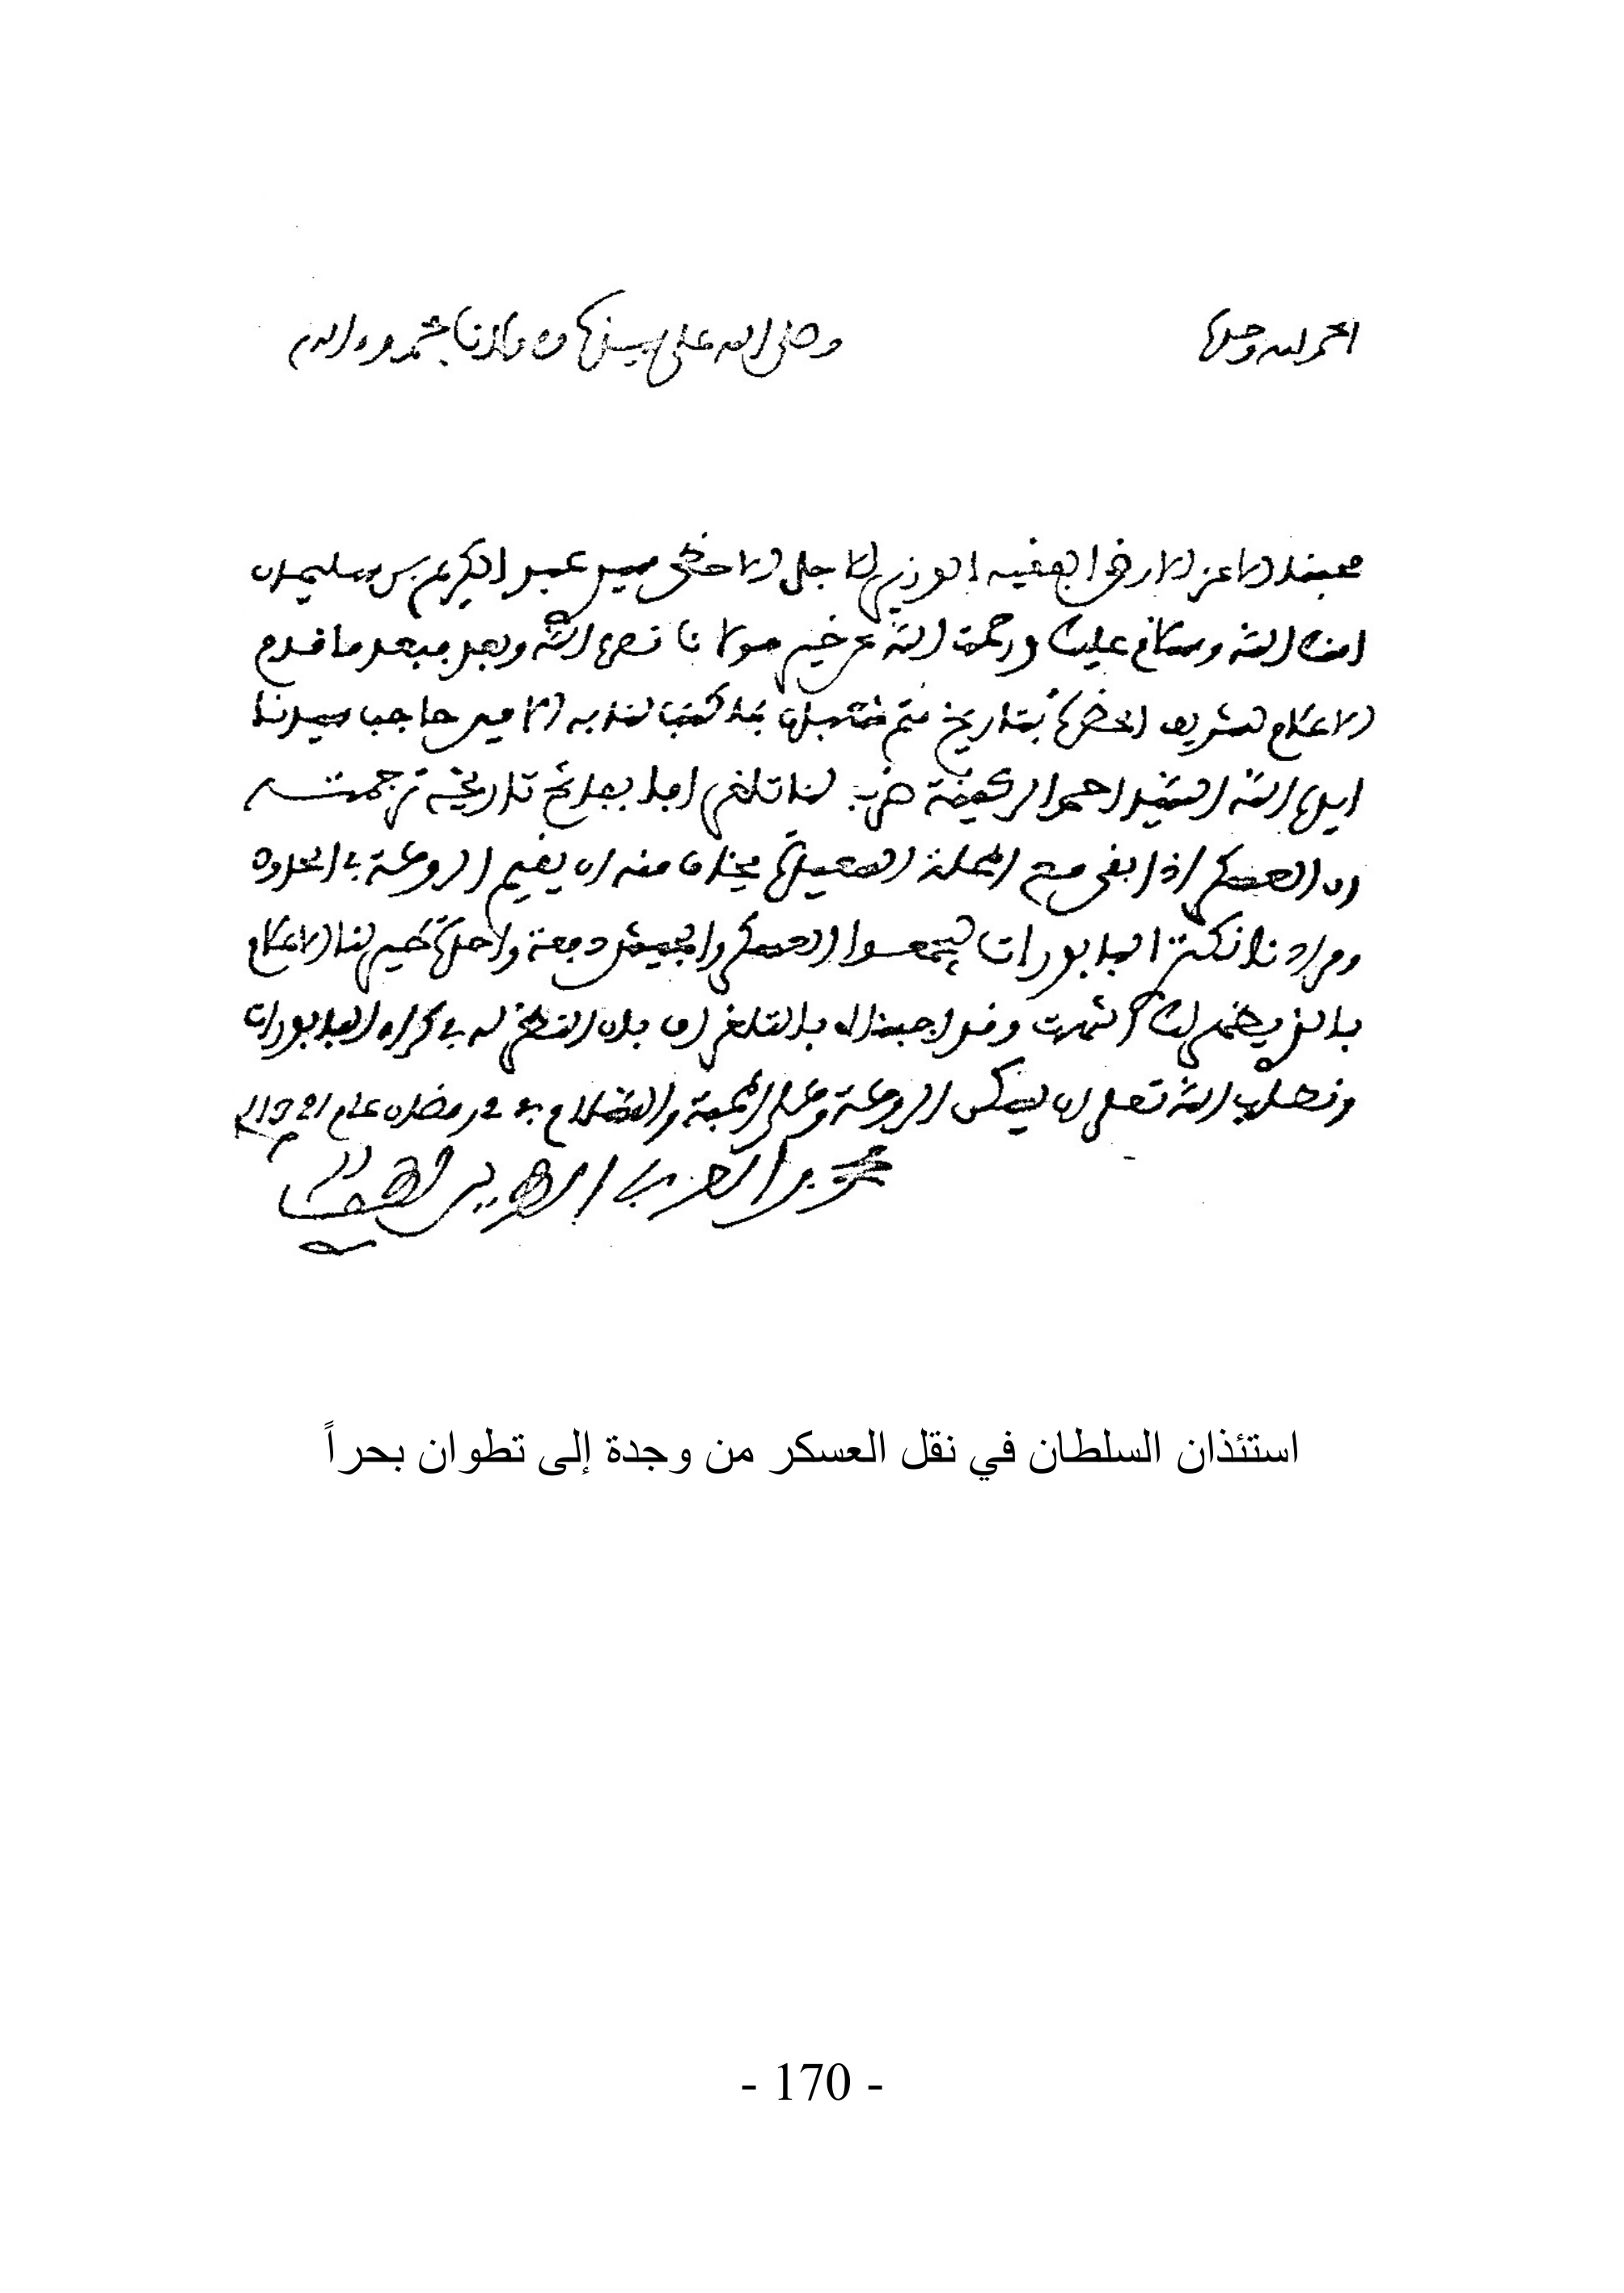 الحمد لله وحده
وصلى الله على سيدنا ومولانا محمد وءاله
محبنا الاعز الارضى الفقيه الوزير الاجل الاحظى سيدي عبد الكريم بن سليمان
امنك الله وسلام عليك ورحمة الله عن خير مولانا نصره الله وبعد فبعد ما قدم
الاعلام لشريف الحضرة بتاريخ كتب لنا به الامين حاجب سيدنا
ايده الله السيد احمد الركينة لنا تلغرافا بفاتح تاريخه ترجمته
ان العسكر اذا بقى مع المحلة السعيدة يخاف منه ان يقيم الروعة في الحدود
ومرادنا نكتر البابورات العسكر والجيش دفعة واحدة لنا الاعلام
بالذي يظهر لك وقد اجبناه بالتلغراف بان النظر له في كراء البابورات
ونطلب الله تعلى ان يسكن الروعة وعلى المحبة والسلام في رمضان عام
محمد بن العربي الطريس لطف الله
به
استئذان السلطان في نقل العسكر من وجدة إلى تطوان بحراً
- 170 -